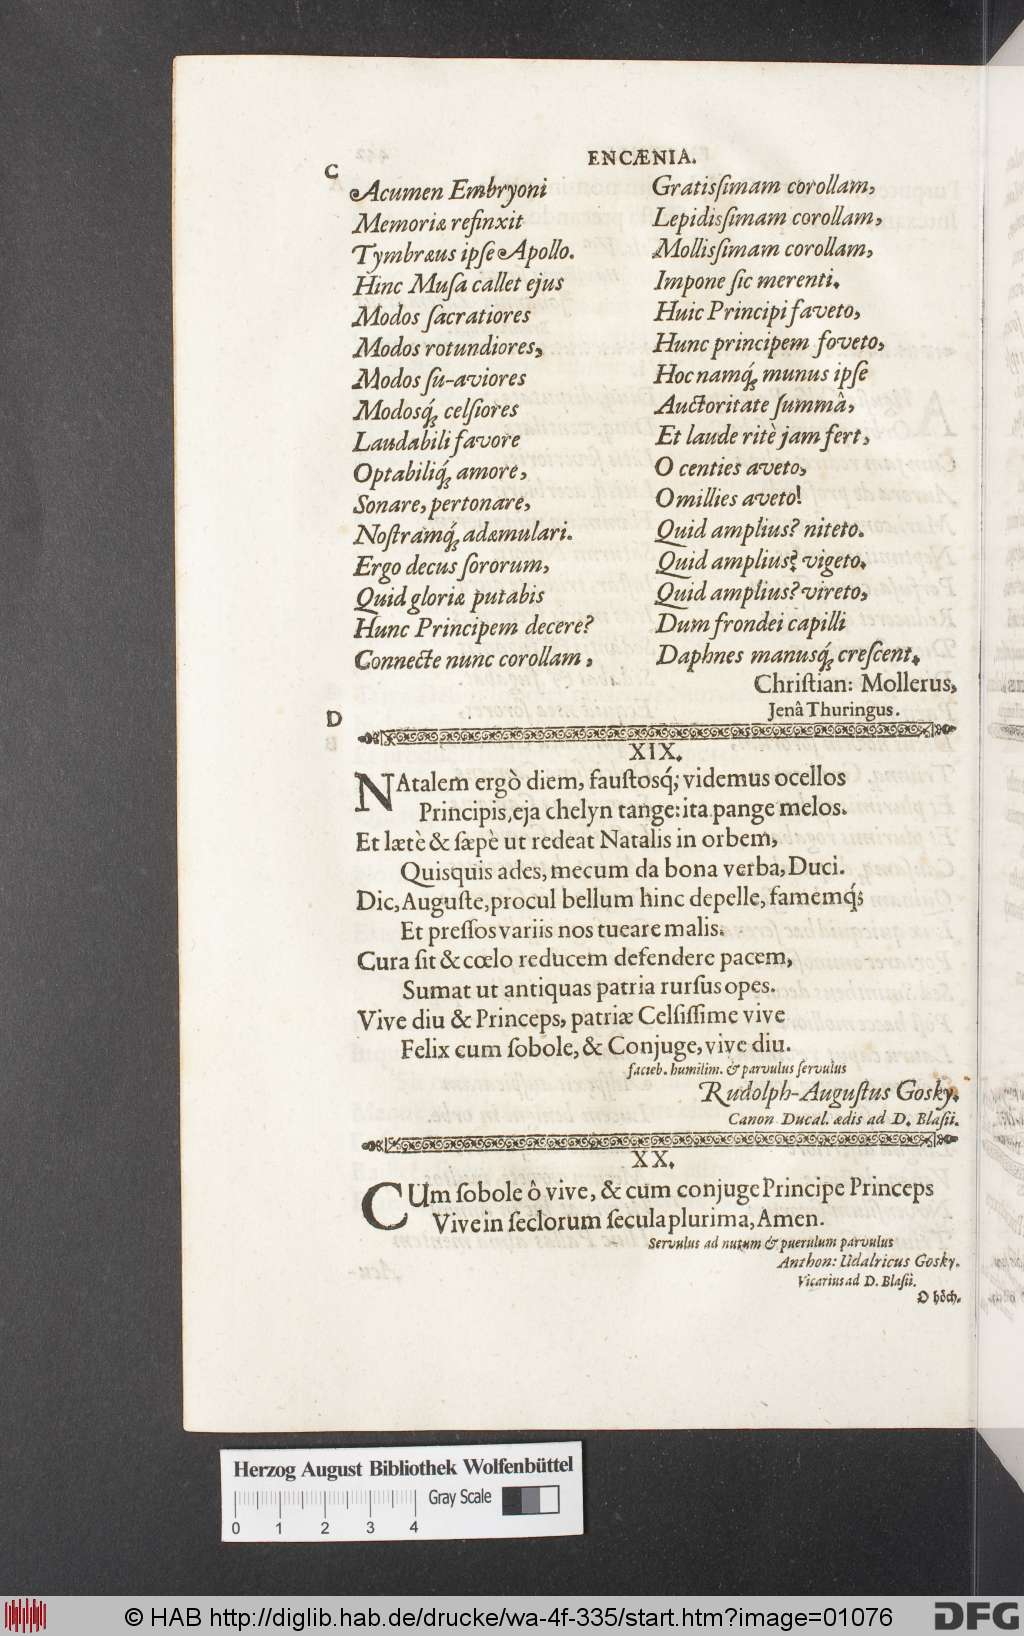 ENCÆNIA.
C
Acumen Embryoni
Memoriæ refinxit
Tymbræus ipſe Apollo.
Hinc Muſa callet ejus
Modos ſacratiores
Modos rotundiores,
Modos ſu-aviores
Modosq́; celſiores
Laudabili favore
Optabiliq́; amore,
Sonare, pertonare,
Noſtramq́; adæmulari.
Ergo decus ſororum,
Quid gloriæ putabis
Hunc Principem decere?
Connecte nunc corollam,
Gratisſimam corollam,
Lepidisſimam corollam,
Mollisſimam corollam,
Impone ſic merenti.
Huic Principi faveto,
Hunc principem foveto,
Hoc namq́; munus ipſe
Auctoritate ſummâ,
Et laude ritè jam fert,
O centies aveto,
O millies aveto!
Quid amplius? niteto.
Quid amplius? vigeto.
Quid amplius? vireto,
Dum frondei capilli
Daphnes manusq́; creſcent.
Chriſtian: Mollerus,
Jenâ Thuringus.
D
XIX.
NAtalem ergò diem, fauſtosq́; videmus ocellos
Principis, eja chelyn tange: ita pange melos.
Et lætè & ſæpè ut redeat Natalis in orbem,
Quisquis ades, mecum da bona verba, Duci.
Dic, Auguſte, procul bellum hinc depelle, famemq́;
Et preſſos variis nos tueare malis.
Cura ſit & cœlo reducem defendere pacem,
Sumat ut antiquas patria rurſus opes.
Vive diu & Princeps, patriæ Celſiſſime vive
Felix cum ſobole, & Conjuge, vive diu.
facieb. humilim. & parvulus ſervulus
Rudolph-Auguſtus Gosky.
Canon Ducal. ædis ad D. Blaſii.
XX.
CUm ſobole ô vive, & cum conjuge Principe Princeps
Vive in ſeclorum ſecula plurima, Amen.
Servulus ad nutum & puerulum parvulus
Anthon: Udalricus Gosky.
Vicarius ad D. Blaſii.
O höch.
Herzog August Bibliothek Wolfenbüttel
Gray Scale
0 1 2 3 4
© HAB http://diglib.hab.de/drucke/wa-4f-335/start.htm?image=01076
DFG